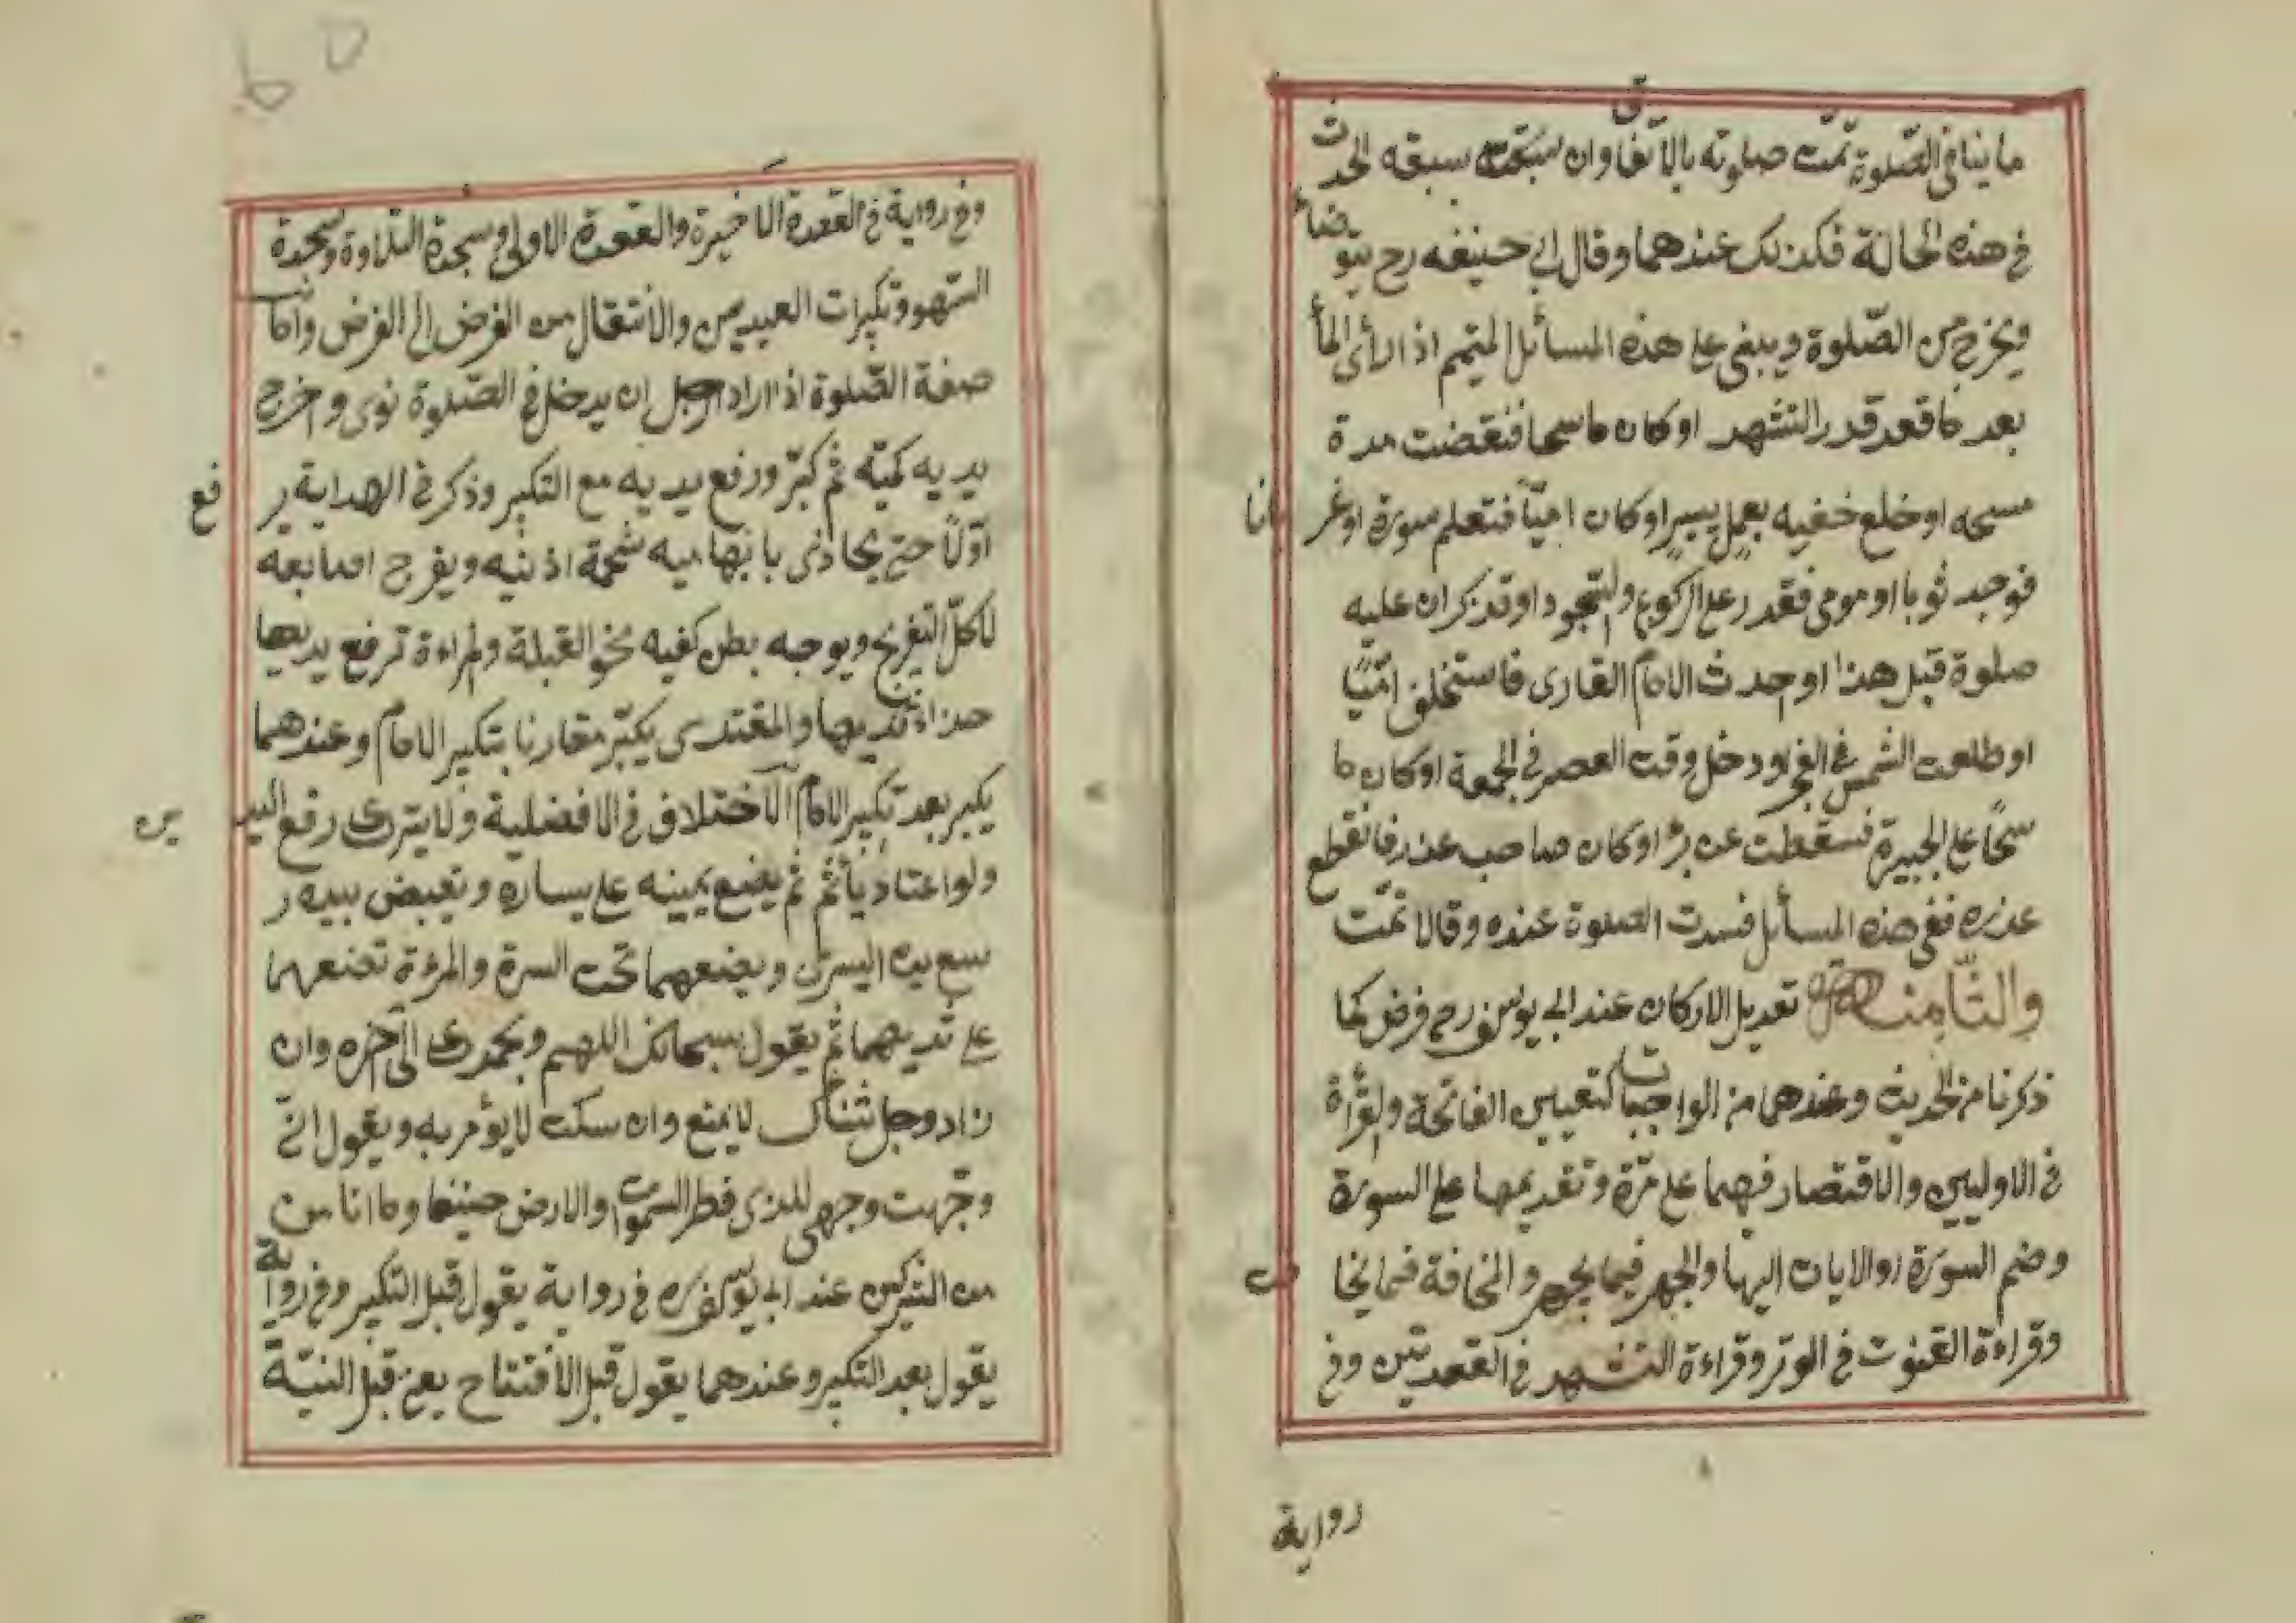 ما ينافى الصّلوة تمّت صلوته بالاتفاق وان سبقه الحدث
فى هذه الحالة فكذلك عندهما وقال ابى حنيفه رح يتوضاء
ويخرج من الصّلوة ويبنى على هذه المسائل المتيمم اذا رأى الماء
بعد ما قعد قدر التشهد او كان ماسحا فنقضت مدة
مسحه او خلع خفيه بعمل يسير او كان اميّاً فتعلم سورة او عريانا
فوجد ثوبا او مومى فقدر على الركوع والسّجود او تذكر ان عليه
صلوة قبل هذا او احدث الامام القارى فاستخلف امّيّاً
او طلعت الشمس فى الفجر او دخل وقت العصر فى الجمعة او كان ما
سحًا على الجبيرة فسقطت عن برء او كان صاحب عذر فانقطع
عذره ففى هذه المسائل فسدت الصلوة عنده وقالا تمّت
والثّامنة تعديل الاركان عند ابى يوسف رح فرض كما
ذكرنا من الحديث وعندهما من الواجبات كتعيين الفاتحة والقرأة
فى الاوليين والاقتصار فيهما على مرّة وتقديمها على السورة
وضم السورة او الايات اليها والجهر فيما يجهر والمخافة فيما يخافت
وقراءة القنوت فى الوتر وقراءة التشهد فى القعدتين وفى
رواية
وفى رواية فى القعدة الاخيرة والقعدة الاولى وسجدة التلاوة وسجدة
السّهو وتكبيرات العيدين والانتقال من الفرض الى الفرض واما
صفة الصّلوة اذا اراد الرجل ان يدخل فى الصّلوة نوى واخرج
يديه كميّه ثم كبّر ورفع يديه مع التكبير وذكر فى الهداية يرفع
اوّلاً حتى يحاذى بابهاميه شحمة اذنيه ويفرج اصابعه
لا كلّ التفريج ويوجه بطن كفيه نحو القبلة والمراءة ترفع يديها
حذاء ثدييها والمقتدى يكبّر مقارنا بتكبير الامام وعندهما
يكبر بعد تكبير الامام الاختلاف فى الافضلية ولا يترك رفع اليدين
ولو اعتاد يأثم ثم يضع يمينه على يساره وتقبض بيده ر
سع يده اليسرى ويضعهما تحت السرة والمرءة تضعهما
على ثدييهما ثم يقول سبحانك اللهم وبحمدك الى اخره وان
زاد وجل ثناك لا يمنع وان سكت لا يؤمر به ويقول انى
وجّهت وجهى للذى فطر السموات والارض حنيفا وما انا من
من المشركين عند ابى يوسف ره فى رواية يقول قبل التكبير وفى رواية
يقول بعد التكبير وعندهما يقول قبل الافتتاح يعنى قبل النيّة